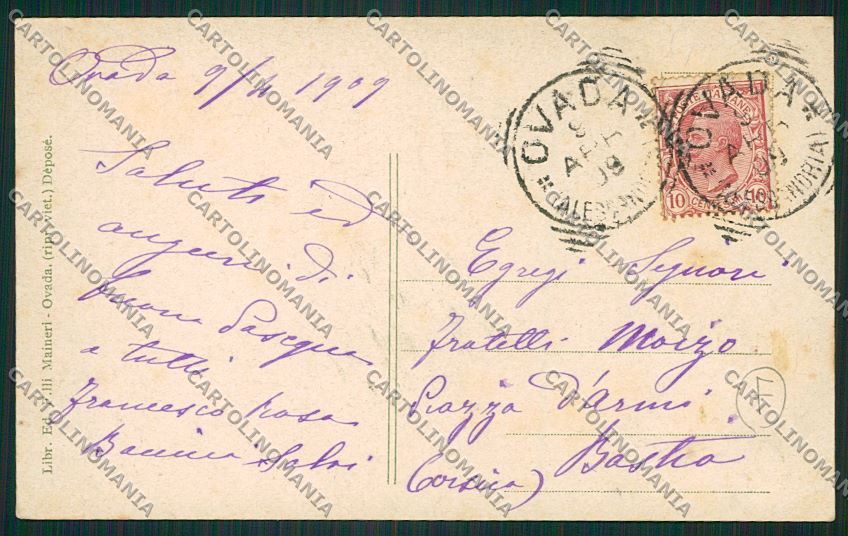 Ovada 9/4 1909
Saluti ed
auguri di
buona Pasqua
a tutti
Francesco Rosa
Egregi Signori
Fratelli Moizo
Piazza d'Armi
Bastia
(Corsica)
OVADA
9 APR 09
(ALESSANDRIA)
OVADA
APR 09
(ALESSANDRIA)
POSTE ITALIANE
10 CENT 10
47
Libr. Ed. F.lli Maineri - Ovada. (rip. viet.) Déposé.
CARTOLINOMANIA